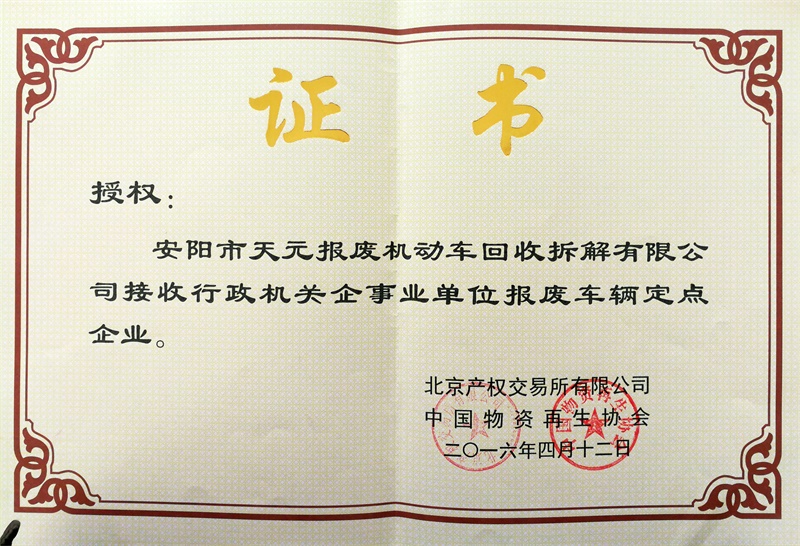 证书
授权：
安阳市天元报废机动车回收拆解有限公
司接收行政机关企事业单位报废车辆定点
企业。
北京产权交易所有限公司
中国物资再生协会
二〇一六年四月十二日
中国物资再生协会